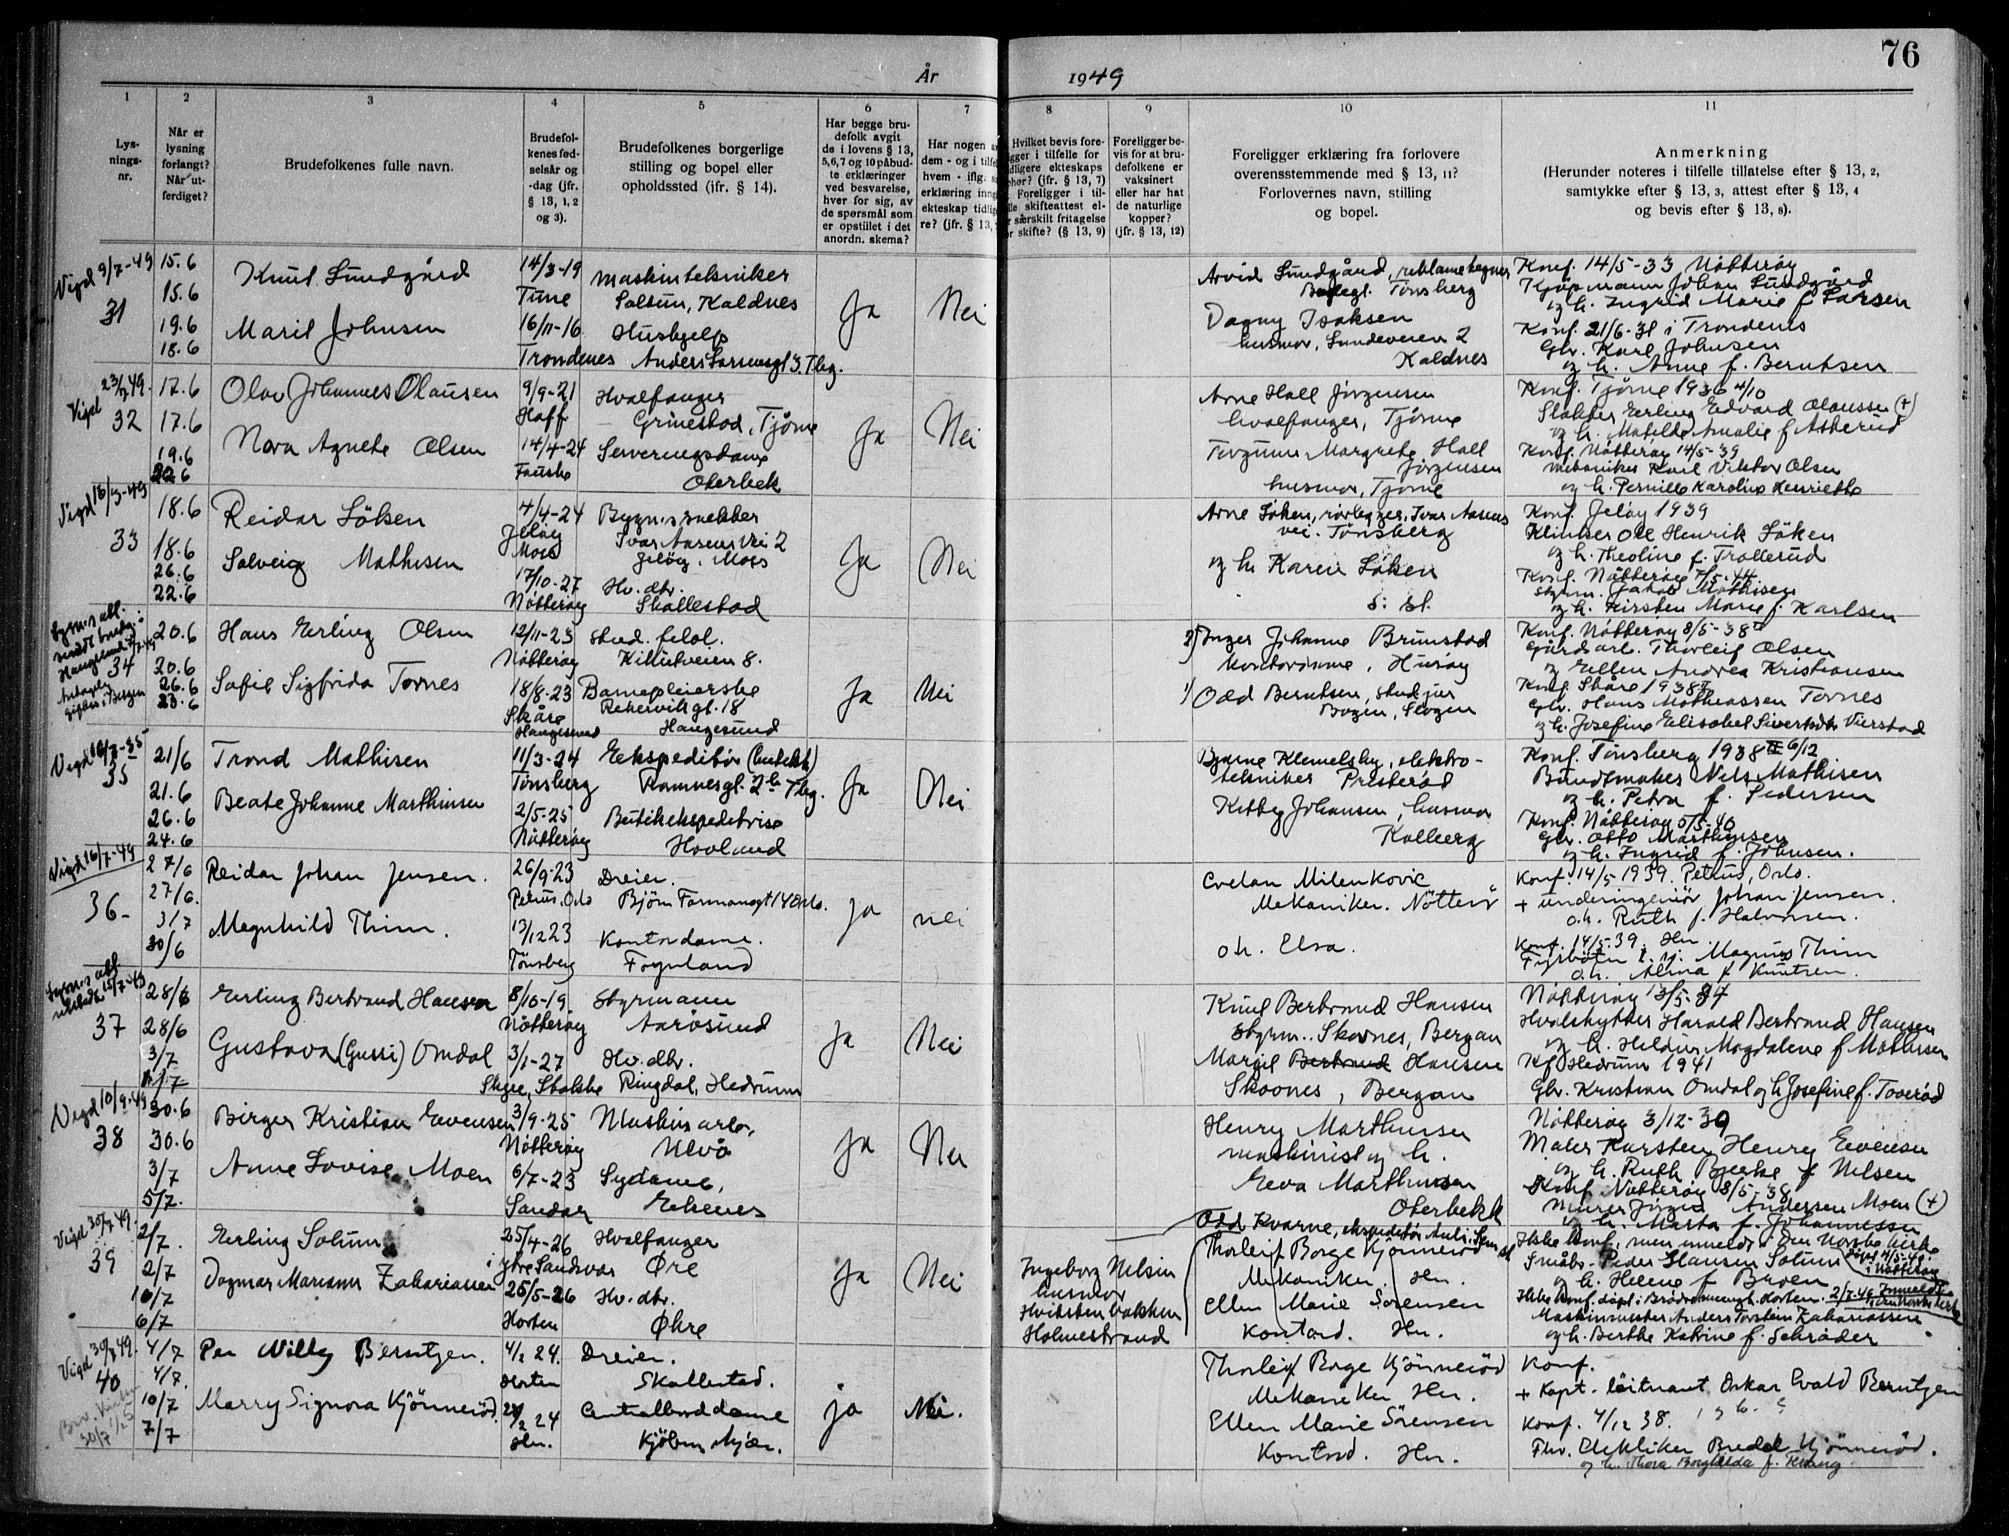 76
År 1949
1 2 3 4 5 6 7 8 9 10 11
Lys-
nings-
nr.
Når er
lysning
forlangt?
Når ut-
ferdiget?
Brudefolkenes fulle navn.
Brudefol-
kenes fød-
selsår og
-dag (jfr.
§ 13, 1, 2
og 3).
Brudefolkenes borgerlige
stilling og bopel eller
opholdssted (jfr. § 14).
Har begge bru-
defolk avgit
de i lovens § 13,
5,6,7 og 10 påbud-
te erklæringer
ved besvarelse,
hver for sig, av
de spørsmål som
er opstillet i det
anordn. skema?
Har nogen a
dem - og i tilfe
hvem - iflg.
erklæring inng
ekteskap tidlig
re? (jfr. § 13,
Hvilket bevis fore-
gger i tilfelle for
dligere ekteskaps
phør? (jfr. § 13, 7)
Foreligger i til-
lle skifteattest el-
r særskilt fritagelse
r skifte? (§ 13, 9)
Foreligger be-
vis for at bru-
defolkene er
vaksinert
eller har hat
de naturlige
kopper?
(jfr. § 13, 12)
Foreligger erklæring fra forlovere
overensstemmende med § 13, 11?
Forlovernes navn, stilling
og bopel.
Anmerkning
(Herunder noteres i tilfelle tillatelse efter § 13, 2,
samtykke efter § 13, 3, attest efter § 13, 4
og bevis efter § 13, 8).
Vigd 9/7-49
31
15.6
15.6
19.6
18.6
Knut Lundgård
Marit Johnsen
14/3-19
Tune
16/11-16
Trondenes
Maskintekniker
Solbun, Kaldnes
Hushjelp
Anders Larsensgt 3. Tbg.
Ja
Nei
Arvid Lundgård, reklametegner
Tønsberg
Dagny Isaksen
husmor, Lundeveien 2
Kaldnes
Konf. 14/5-33 Nøtterøy
Kjøpmann Johan Lundgård
og h. Ingrid Marie f. Larsen
Konf. 21/6-31 i Trondenes
Gbr. Karl Johnsen
og h. Anne f. Berntsen
Vigd 23/7-49.
32
17.6
17.6
19.6
22.6
Olav Johannes Olausen
Nora Agnete Olsen
9/9-21
Haff
14/4-24
Fauske
Hvalfanger
Grimestad, Tjøme
Serveringsdame
Oterbek
Ja
Nei
Arne Hall Jørgensen
hvalfanger, Tjøme
Margrete Hall
Jørgensen
husmor, Tjøme
Konf. Tjøme 1936 4/10
Slakter Erling Edvard Olaussen (+)
og h. Matilde Amalie f Askerud
Konf. Nøtterøy 14/5-39
Mekaniker Karl Viktor Olsen
og h. Pernille Karoline Henriette
Vigd 16/7-49
33
18.6
18.6
26.6
22.6
Reidar Løken
Solveig Mathisen
4/4-24
Jeløy
Moss
17/10-27
Nøtterøy
Bygn.snekker
Ivar Aasens vei 2
Jeløy, Moss
Hv. dtr.
Skallestad
Ja
Nei
Arne Løken, rørlegger, Ivar Aasens
vei. Tønsberg
og h. Karin Løken
s. st.
Konf. Jeløy 1939
Klinker Ole Henrik Løken
og h. Theoline f. Trollerud
Konf. Nøtterøy 7/5-44.
Styrm. Jakob Mathisen
og h. Kirsten Marie f. Karlsen
34
20.6
20.6
26.6
23.6
Hans Erling Olsen
Sofie Sigfrida Tornes
12/11-23
Nøtterøy
18/8-23
Skåre
Haugesund
Stud. filol.
Killutveien 8.
Barnepleierske
Rekervikgt. 18
Haugesund
Ja
Nei
2) Inger Johanne Brunstad
kontordame, Husøy
1) Odd Berntsen, stud jur
Bogen, Skogen
Konf. Nøtterøy 8/5-38
Gårdarb. Thorleif Olsen
og Ellen Andrea Kristiansen
Konf. Skåre 1938
Gbr. Hans Mathiassen Tornes
og h. Josefine Elisabet Sivertsdtr Vierstad
35
21/6
21.6
26.6
24.6
Trond Mathisen
Beate Johanne Marthinsen
11/3-24
Tønsberg
2/5-25
Nøtterøy
Ekspeditør (butikk)
Ramnesgt. 2b Tbg.
Butikkekspeditrise
Hovland
Ja
Nei
Bjarne Klemetsby, elektro-
tekniker Presterød
Kitty Johansen, husmor
Kolberg
Konf. Tønsberg 1938 II 6/12
Bundtmaker Nils Mathisen
og h. Petra f. Pedersen
Konf. Nøtterøy 5/5-40
Gbr. Otto Marthinsen
og h. Ingrid f. Johnsen.
Vigd 16/7-49
36-
27/6
27/6.
3/7
30/6
Reidar Johan Jensen.
Magnhild Thim.
26/9 23
Petrus. Oslo
13/12 23
Tønsberg
Dreier.
Bjørn Farmannsgt 14 Oslo.
Kontordame.
Føynland
ja
nei
Cvetan Milenkovic
Mekaniker. Nøtterø
o.h. Elsa.
Konf. 14/5 1939. Petrus, Oslo.
+ underingeniør Johan Jensen.
o.h. Ruth f. Halvorsen.
Konf. 14/5-39. Hn
Fyrbøter Magnus Thim
o.h. Alma f. Knutsen.
37
28/6
28/6
3/7
Erling Bertrand Hansen
Gustava (Gussi) Omdal
8/10-19
Nøtterøy
3/1-27
Skjee, Stokke
Styrmann
Aarøsund
Hv. dtr.
Ringdal, Hedrum
Ja
Nei
Knut Bertrand Hansen
Styrm. Skovnes, Bergan
Margit Bertrand Hansen
Skovnes, Bergan
Nøtterøy 13/5-34
Hvalskytter Harald Bertrand Hansen
og h. Heldine Magdalene f Mathisen
Kf. Hedrum 1941
Gbr. Kristian Omdal og h Josefine f. Toverød
Vigd 10/9-49
38
30.6
30.6
3/7
5/7.
Birger Kristian Evensen
Anne Lovise Moen
3/9-25
Nøtterøy
6/7-23
Sandar
Maskinarb.
Ulvø
Sydame,
Ekenes
Ja
Nei
Henry Marthinsen
maskinist og h.
Eva Marthinsen
Oterbekk
Nøtterøy 3/12-39
Maler Karsten Henry Evensen
og h. Ruth Bjerke f Nilsen
Konf. Nøtterøy 8/5-38
Murer Jørgen Andersen Moen (+)
og h. Marta f. Johannessen
Vigd 30/7 49.
39
2/7.
2/7
10/7
6/7
Erling Solum
Dagmar Mariann Zakariassen
25/4-26
ytre Sandsvær
25/5-26
Horten
Hvalfanger
Øre
Hv. dtr.
Økre
Ja
Nei
Ingeborg Nilsen
husmor
Hvitstenbakken
Holmestrand
Odd Kvarne, ekspeditør
Thorleif Borge Kjønnerød
Mekaniker. Hn.
Ellen Marie Sørensen
Kontord. Hn.
Ikke konf., men innmeldt i den Norske kirke
Småbr. Peder Hansen Solum
og h. Helene f Broen
Ikke konf. døpt i Brødremenigh. Horten. 2/7-49
Maskinmester Anders Torstein Zakariassen
og h. Berthe Katrine f. Schrøder
Vigd 30/7 49.
40
4/7
4/7.
10/7
7/7
Per Willy Berntzen.
Marry Signora Kjønnerød.
4/2 24.
Horten
24
Hn.
Dreier.
Skallestad.
Centralborddame
Kjøbmskjær.
ja
Nei.
Thorleif Borge Kjønnerød
Mekaniker Hn.
Ellen Marie Sørensen
Kontord. Hn.
Konf.
+ Kapt. løitnant Oskar Evald Berntzen
Konf. 4/12 38.
Fhv. Bredal Kjønnerød.
og h. Thora Borghilda f.